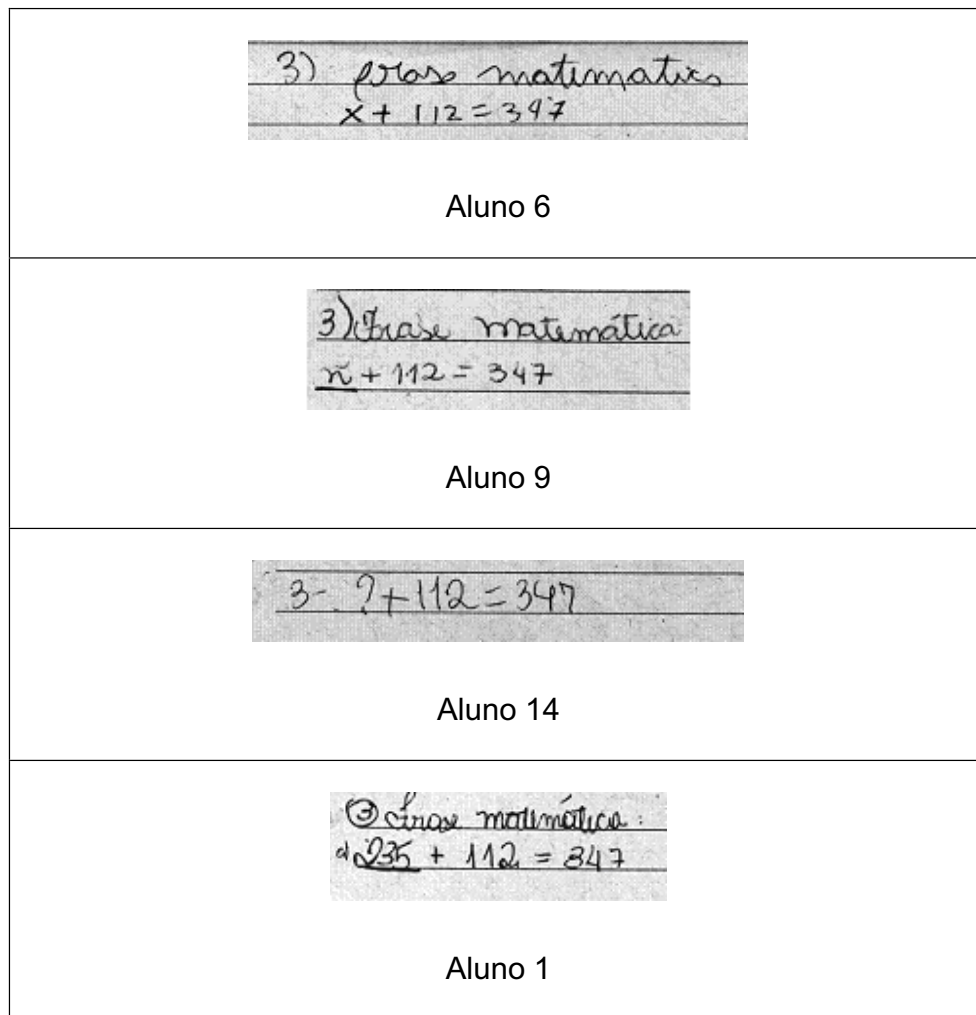 3) frase matimatica
x + 112 = 347
Aluno 6
3) Frase matemática
x + 112 = 347
Aluno 9
3- ? + 112 = 347
Aluno 14
③ frase matimática:
235 + 112 = 347
Aluno 1